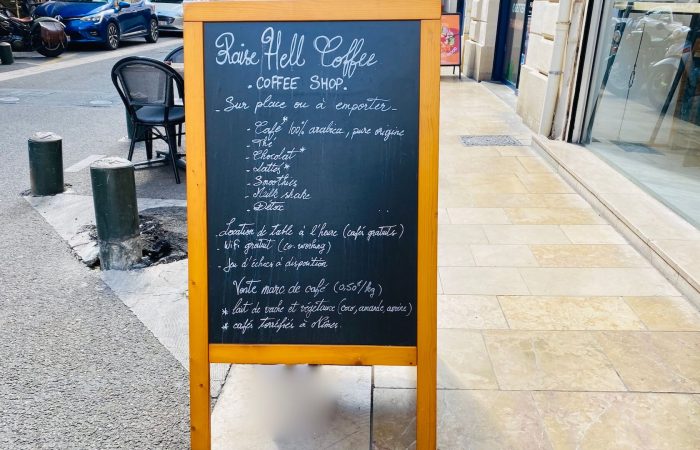 Raise Hell Coffee
. COFFEE SHOP.
- Sur place ou à emporter -
- Café* 100% arabica, pure origine
- Thé
- Chocolat*
- Lattés*
- Smoothies
- Milk shake
- Détox
. Location de table à l'heure (cafés gratuits)
- Wifi gratuit (co-working)
- Jeu d'échecs à disposition
Vente marc de café (0,50€/kg)
* lait de vache et végétaux (coco, amande, avoine)
* cafés torréfiés à Nîmes.